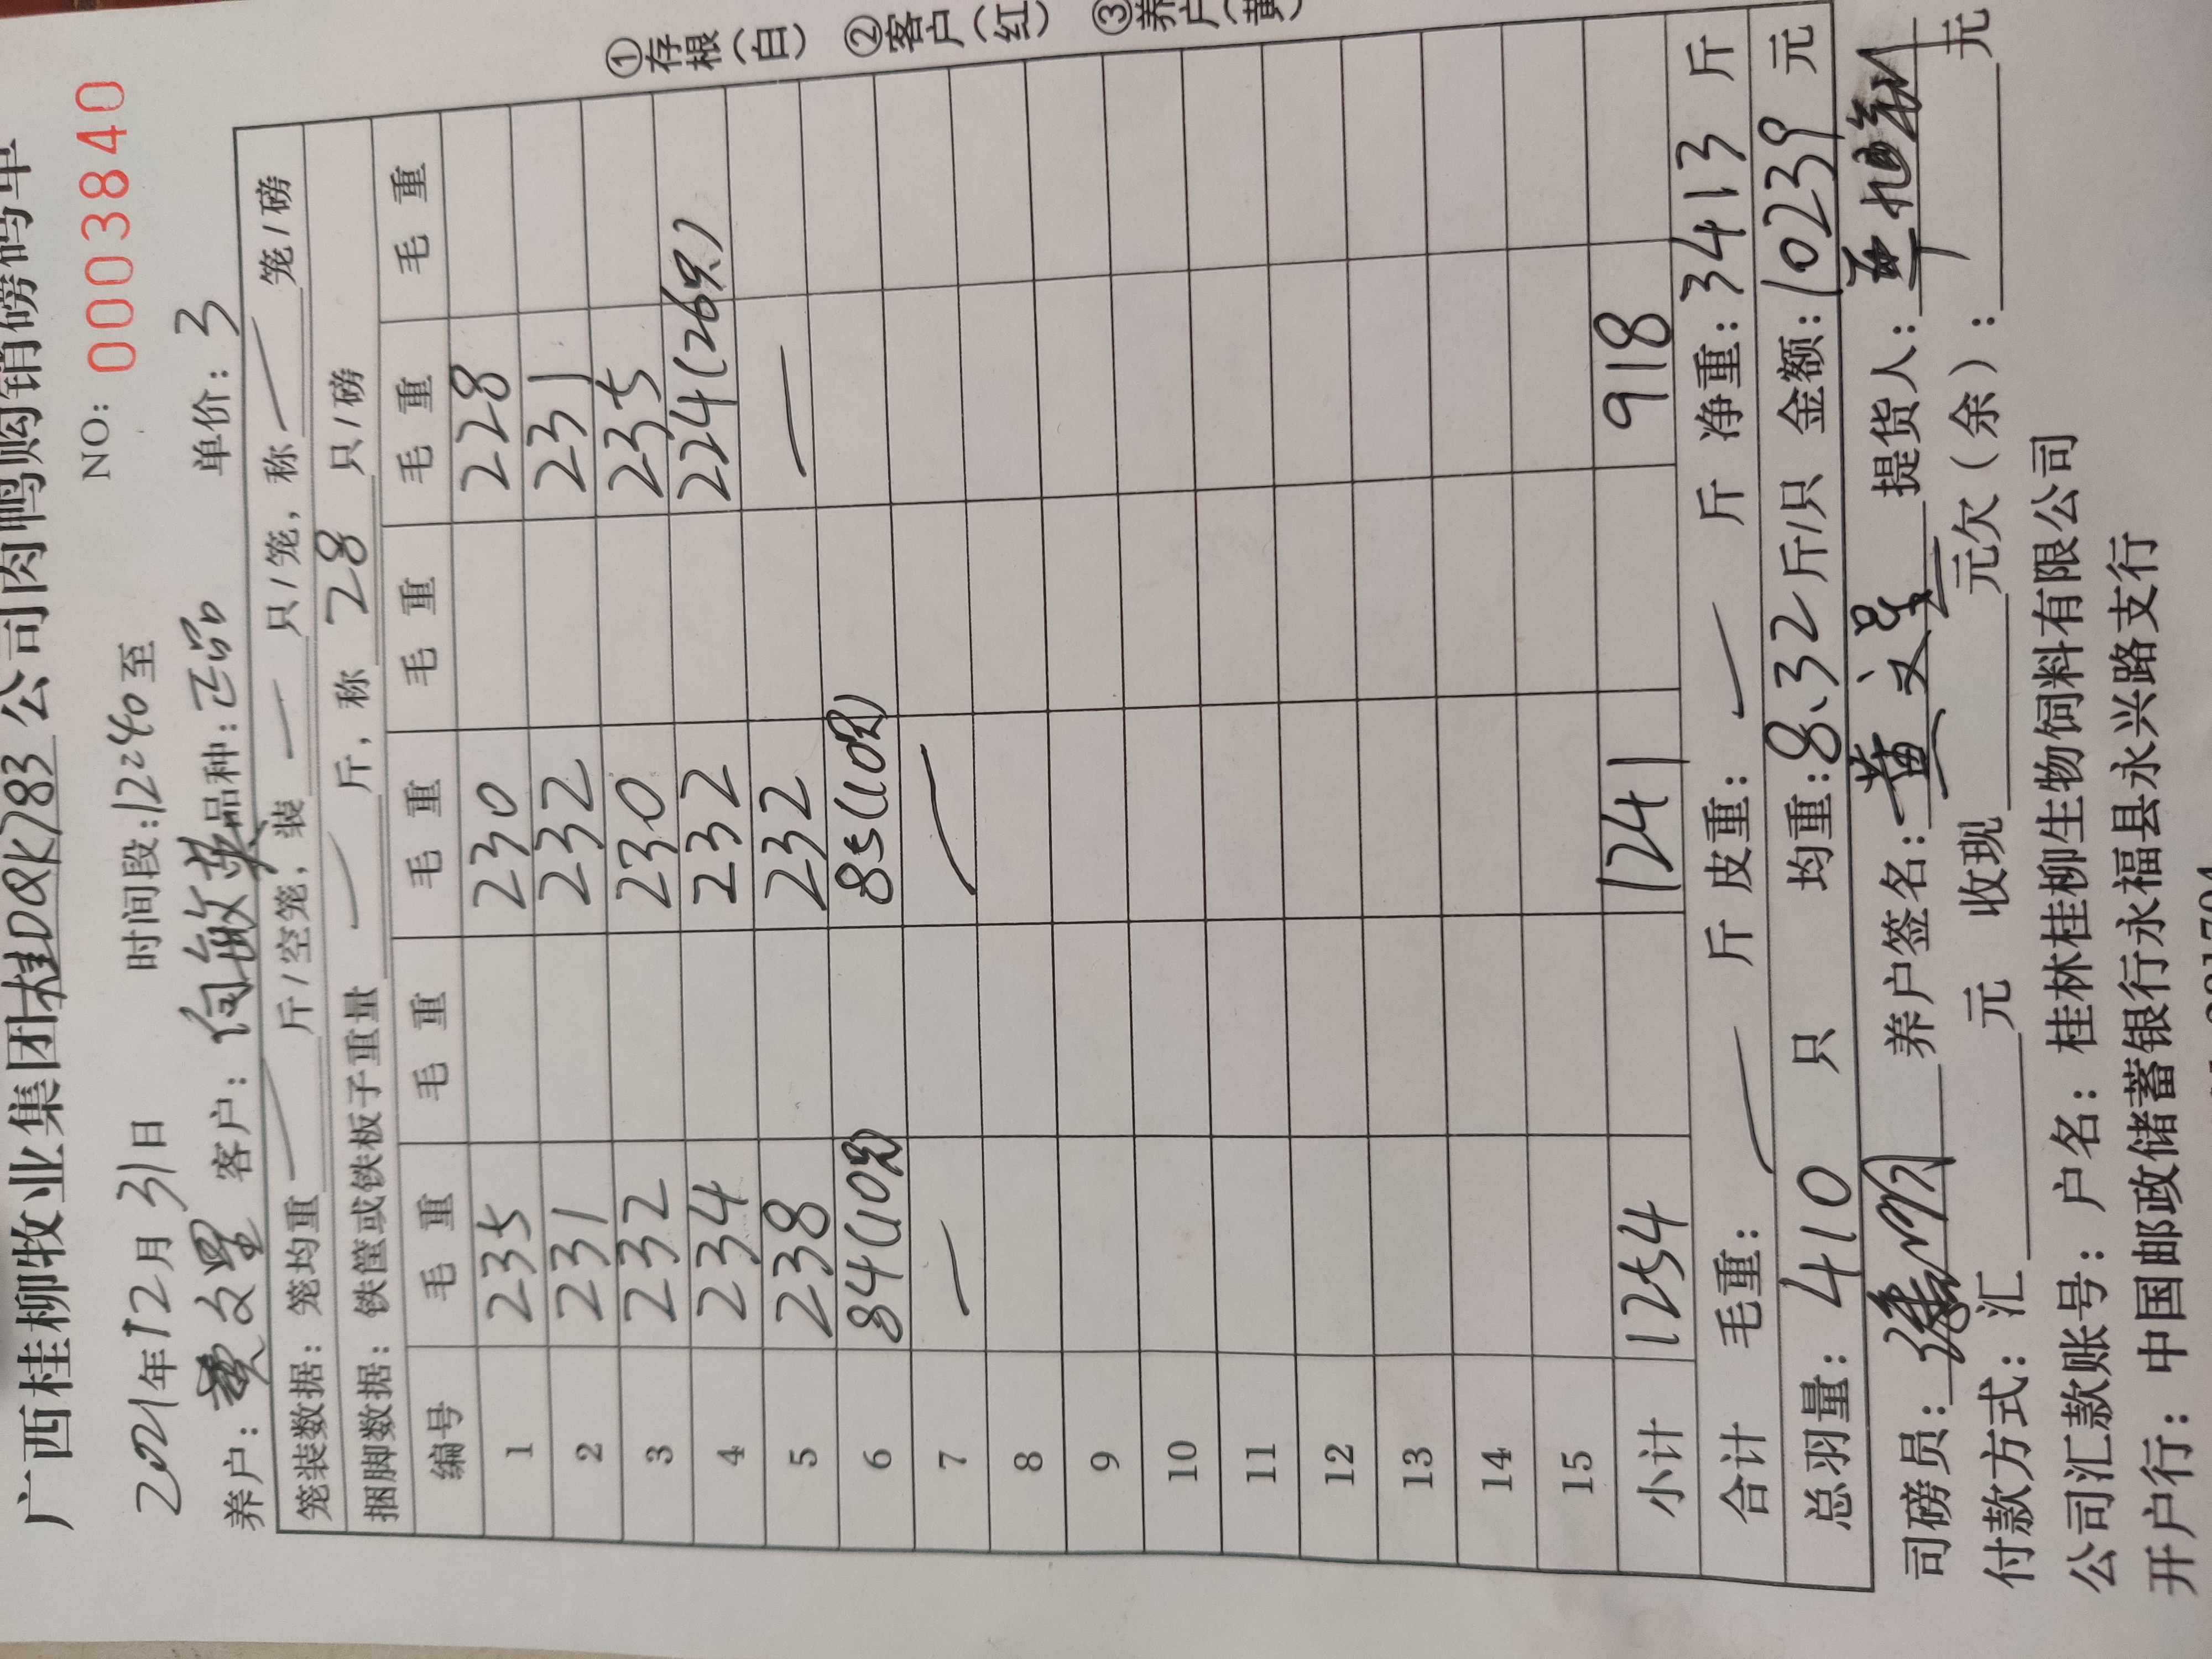 广西桂柳牧业集团桂DQK783公司肉鸭购销磅码单
NO: 0003840
2021年12月31日 时间段:1240至
养户: 黄文星 客户: 何敏英 品种:正品 单价: 3
笼装数据: 笼均重 斤/空笼, 装 只/笼, 称 笼/磅
捆脚数据: 铁筐或铁板子重量 斤, 称 28 只/磅
编号 毛重 毛重 毛重 毛重 毛重 毛重
1 235 230 228
2 231 232 231
3 232 230 235
4 234 232 224(26只)
5 238 232 —
6 84(10只) 85(10只)
7 — —
8
9
10
11
12
13
14
15
小计 1254 1241 918
合计 毛重: — 斤 皮重: — 斤 净重: 3413 斤
总羽量: 410 只 均重:8.32斤/只 金额:10239 元
司磅员: 养户签名: 黄文星 提货人:
付款方式: 汇 元 收现 元欠(余): 元
公司汇款账号: 户名: 桂林桂柳生物饲料有限公司
开户行: 中国邮政储蓄银行永福县永兴路支行
①存根(白) ②客户(红) ③养户(黄)